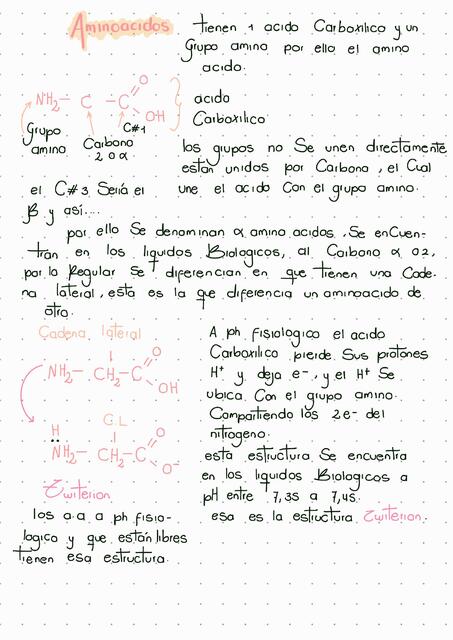 Aminoacidos
tienen 1 acido Carboxilico y un
Grupo amino por ello el amino
acido.
NH2 – C – C
O
OH
acido
Carboxilico
Grupo
amino
Carbono
2 o α
C#1
los grupos no Se unen directamente
están unidos por Carbono, el Cual
une el acido Con el grupo amino.
el C#3 Sería el
β y así....
por ello Se denominan α amino acidos, Se enCuen-
tran en los liquidos Biologicos, al Carbono α o 2,
por lo Regular Se diferencian en que tienen una Cade-
na lateral, esta es la que diferencia un aminoacido de
otro.
Cadena lateral
NH2 – CH – C
O
OH
H
C.L
NH2 – CH2 – C
O
O-
Zwiterion
los a.a a ph fisio-
logico y que están libres
tienen esa estructura.
A ph fisiologico el acido
Carboxilico pierde Sus protones
H+ y deja e-, y el H+ Se
ubica Con el grupo amino.
Compartiendo los 2e- del
nitrogeno.
esta estructura Se encuentra
en los liquidos Biologicos a
pH entre 7,35 a 7,45.
esa es la estructura Zwiterion.